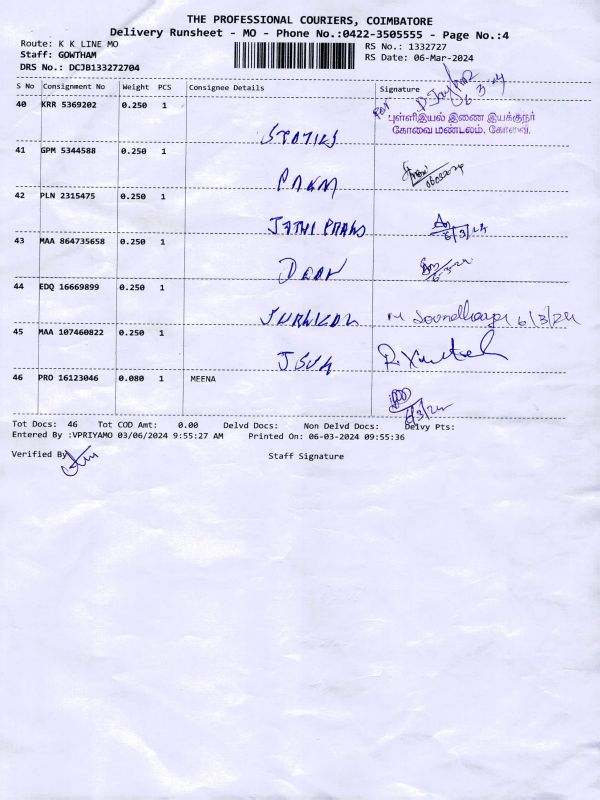 THE PROFESSIONAL COURIERS, COIMBATORE
Delivery Runsheet - MO - Phone No.:0422-3505555 - Page No.:4
Route: K K LINE MO
RS No.: 1332727
Staff: GOWTHAM
RS Date: 06-Mar-2024
DRS No.: DCJB133272704
S No Consignment No Weight PCS Consignee Details Signature
40 KRR 5369202 0.250 1
6-3-24
புள்ளியியல் இணை இயக்குநர்
கோவை மண்டலம், கோவை.
41 GPM 5344588 0.250 1
06032024
42 PLN 2315475 0.250 1
6/3/24
43 MAA 864735658 0.250 1
6-3-24
44 EDQ 16669899 0.250 1
6/3/24
45 MAA 107460822 0.250 1
46 PRO 16123046 0.080 1 MEENA
6/3/24
Tot Docs: 46 Tot COD Amt: 0.00 Delvd Docs: Non Delvd Docs: Delvy Pts:
Entered By :VPRIYAMO 03/06/2024 9:55:27 AM Printed On: 06-03-2024 09:55:36
Verified By
Staff Signature